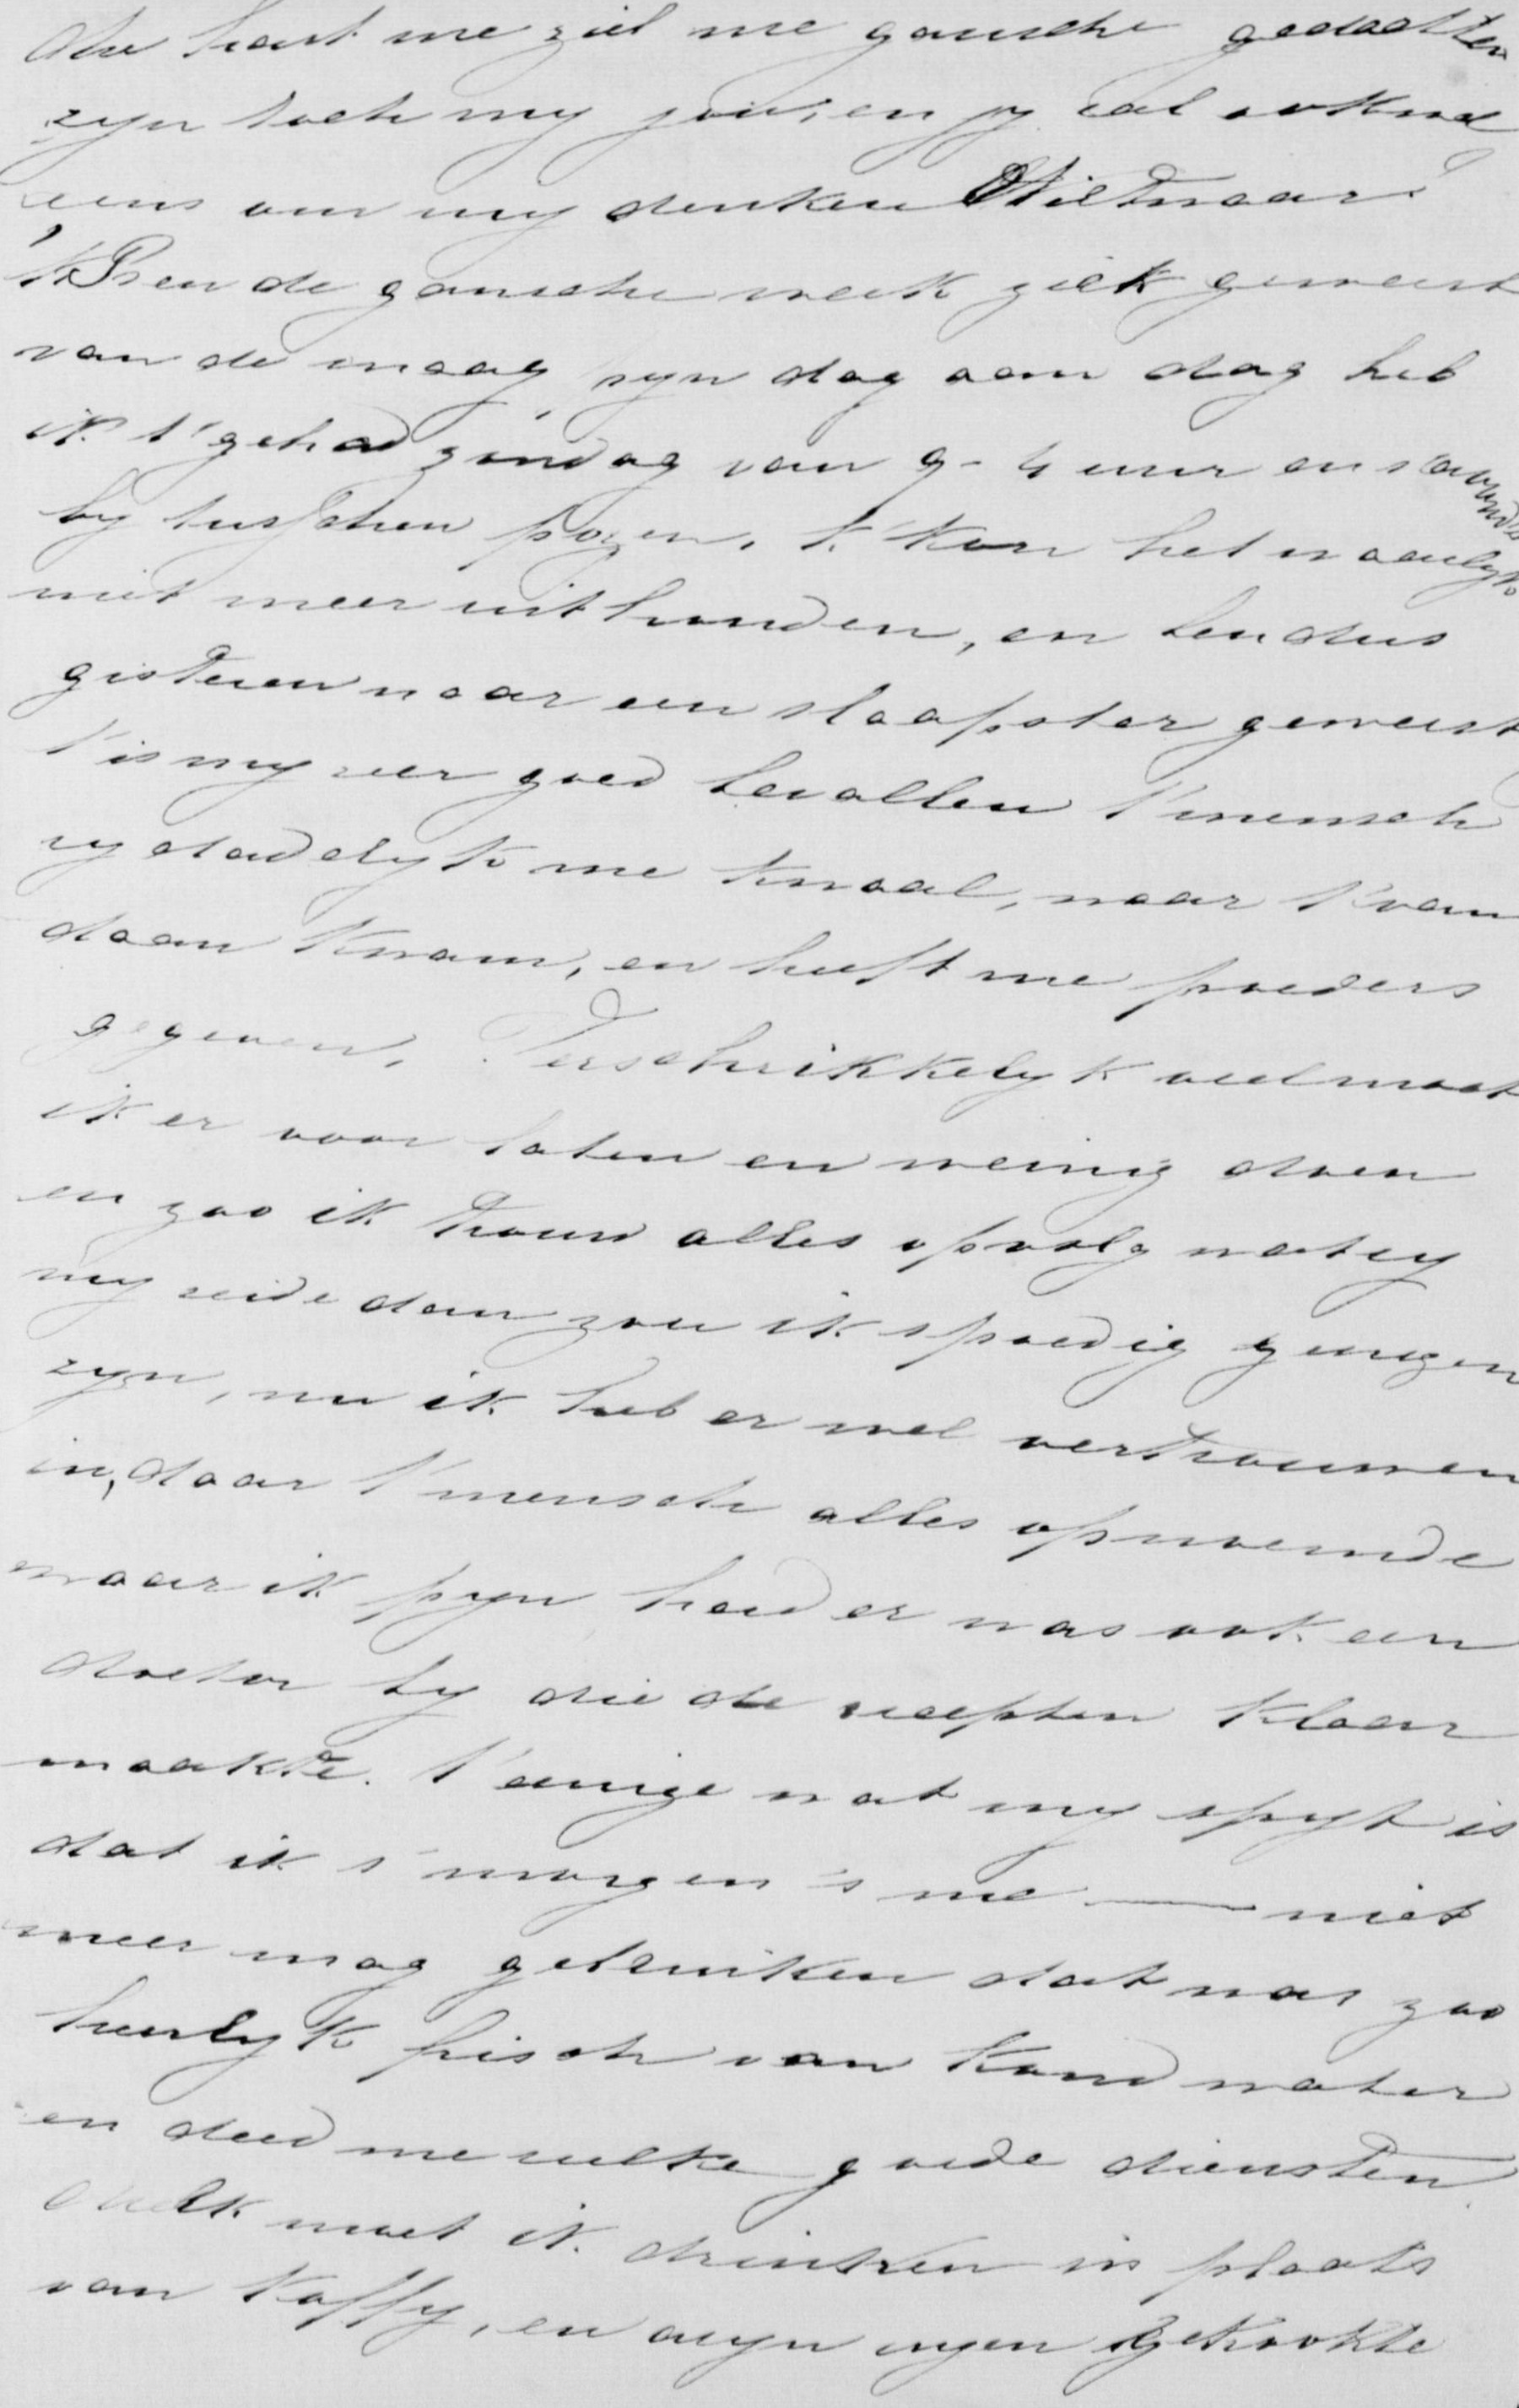 me hart me ziel me gansche gedachten
zyn toch my jou, en jy zal ook wel
eens om my denken Nietwaar?
'k Ben de gansche week ziek geweest
van de maag pyn dag aan dag heb
ik t'gehad zondag van 9 - 4 uur en s'avonds
by tusschen pozen, k'kon het waarlyk
niet meer uithouden, en ben dus
gisteren naar een slaapster geweest
t'is my zeer goed bevallen t'mensch
zy dadelyk me kwaal, waar t'van
daan kwam, en heeft me poeders
gegeven. Verschrikkelyk veel moet
ik er voor laten en weinig doen
en zoo ik trouw alles opvolg wat zy
my zeide dan zou ik spoedig genezen
zyn, nu ik heb er wel vertrouwen
in, daar t'mensch alles opnoemde
waar ik pyn had er was ook een
doctor by die de recepten klaar
maakte. t'eenige wat my spyt is
dat ik s'morgen's me — niet
meer mag gebruiken dat was zoo
heerlyk frisch van koud water
en deed me zulke goede diensten
Melk moet ik drinken in plaats
van koffy, en azyn uyen gekookte